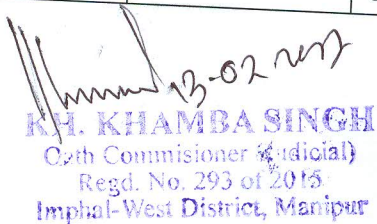 13-02-2017
KH. KHAMBA SINGH
Oath Commisioner (Judicial)
Regd. No. 293 of 2015
Imphal-West District, Manipur